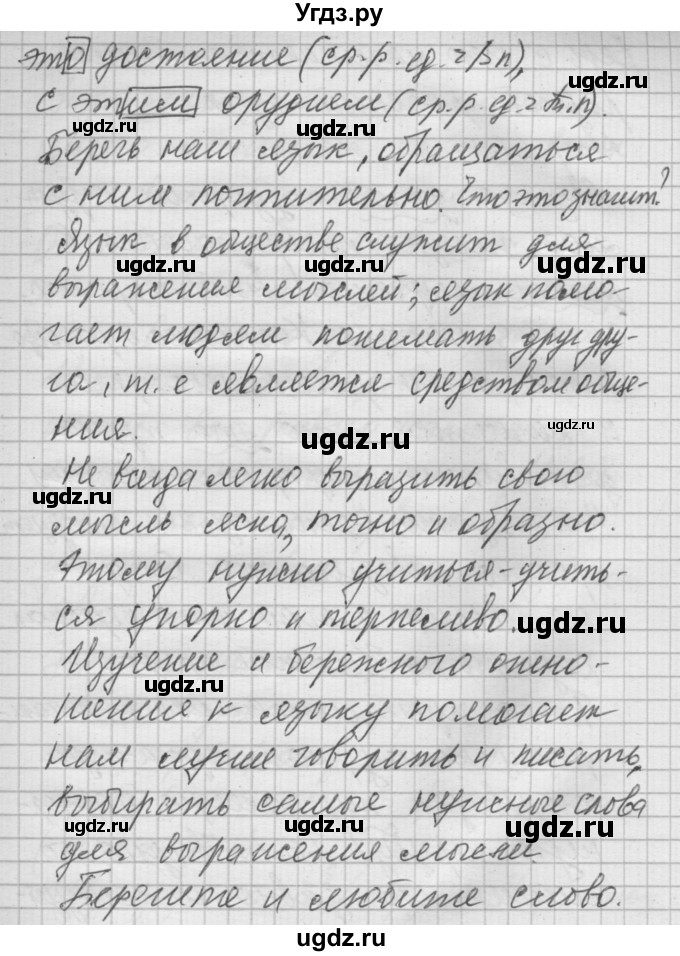 Угдз.ру
это достояние (ср.р. ед.ч В.п),
с этим орудием (ср.р. ед.ч Тв.п).
Беречь наш язык, обращаться
с ним почтительно. Что это значит?
Язык в обществе служит для
выражения мыслей; язык помо-
гает людям понимать друг дру-
га, т. е является средством обще-
ния.
Не всегда легко выразить свою
мысль ясно, точно и образно.
Этому нужно учиться - учить-
ся упорно и терпеливо.
Изучение и бережного отно-
шения к языку помогает
нам лучше говорить и писать,
выбирать самые нужные слова
для выражения мысли.
Берегите и любите слово.
ugdz.ru